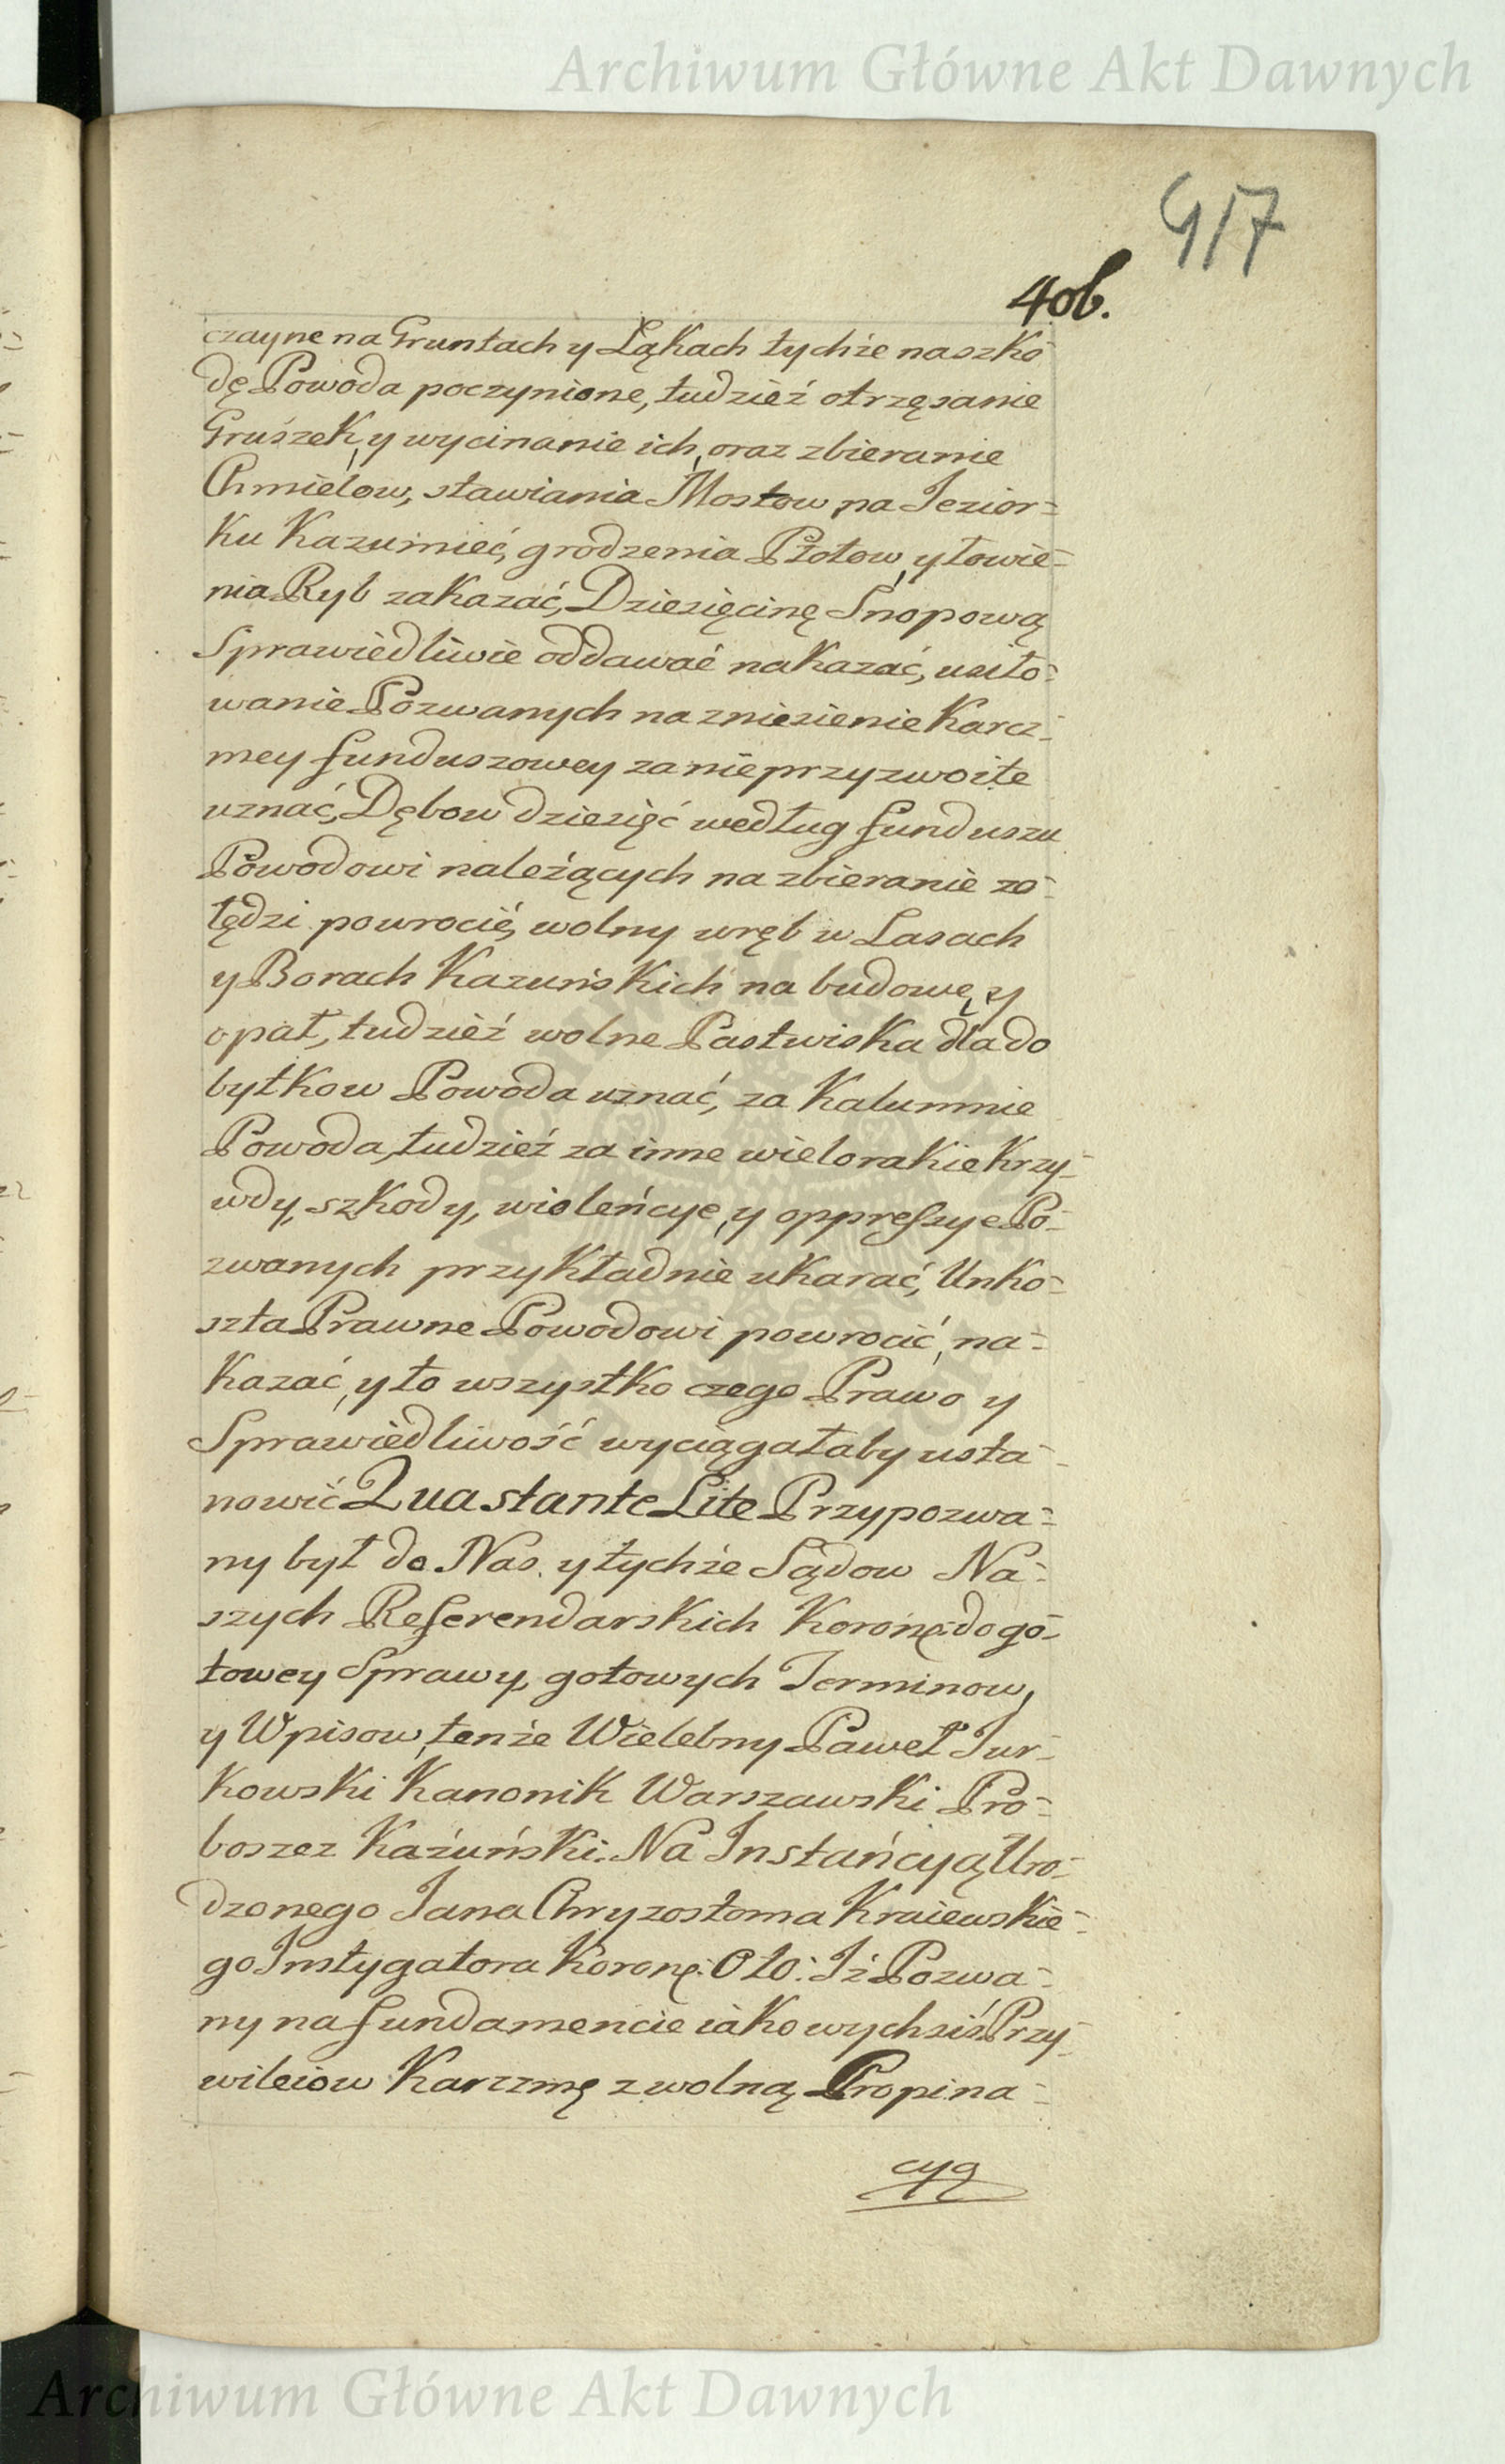 Archiwum Główne Akt Dawnych
417
406.
czayne na Gruntach y Łąkach tychże na szko-
dę Powoda poczynione, tudzież otrzęsanie
Gruszek, y wycinanie ich, oraz zbieranie
Chmielow, stawiania Mostow na Jezior=
ku Kazumieć, grodzenia Płotow, y łowie=
nia Ryb zakazać, Dziesięcinę Snopową
Sprawiedliwie oddawać nakazać, usiło=
wanie Pozwanych na zniesienie Karcz-
mey funduszowey za nieprzyzwoite
uznać, Dębow dziesięć według funduszu
Powodowi należących na zbieranie żo-
łędzi powrocić, wolny wręb w Lasach
y Borach Kazuńskich na budowę, y
opał, tudzież wolne Pastwiska dla do
bytkow Powoda uznać, za Kalumnie
Powoda, tudzież za inne wielorakie krzy-
wdy, szkody, wioleńcye, y oppressye Po-
zwanych przykładnie ukarać, Unko-
szta Prawne Powodowi powrocić, na-
kazać, y to wszystko czego Prawo y
Sprawiedliwość wyciągałaby usta-
nowić Qua stante Lite Przypozwa=
ny był do Nas. y tychże Sądow Na-
szych Referendarskich Koronę: do go-
towey Sprawy, gotowych Terminow,
y Wpisow, tenże Wielebny Paweł Jur-
kowski Kanonik Warszawski Pro-
boszcz Kaźuński. Na Instańcyą Uro-
dzonego Jana Chryzostoma Kraiewskie-
go Instygatora Koronę: O to: Iż Pozwa-
ny na fundamencie iakowychsiś Przy-
wileiow Karczmę z wolną Propina-
cyą
Archiwum Główne Akt Dawnych